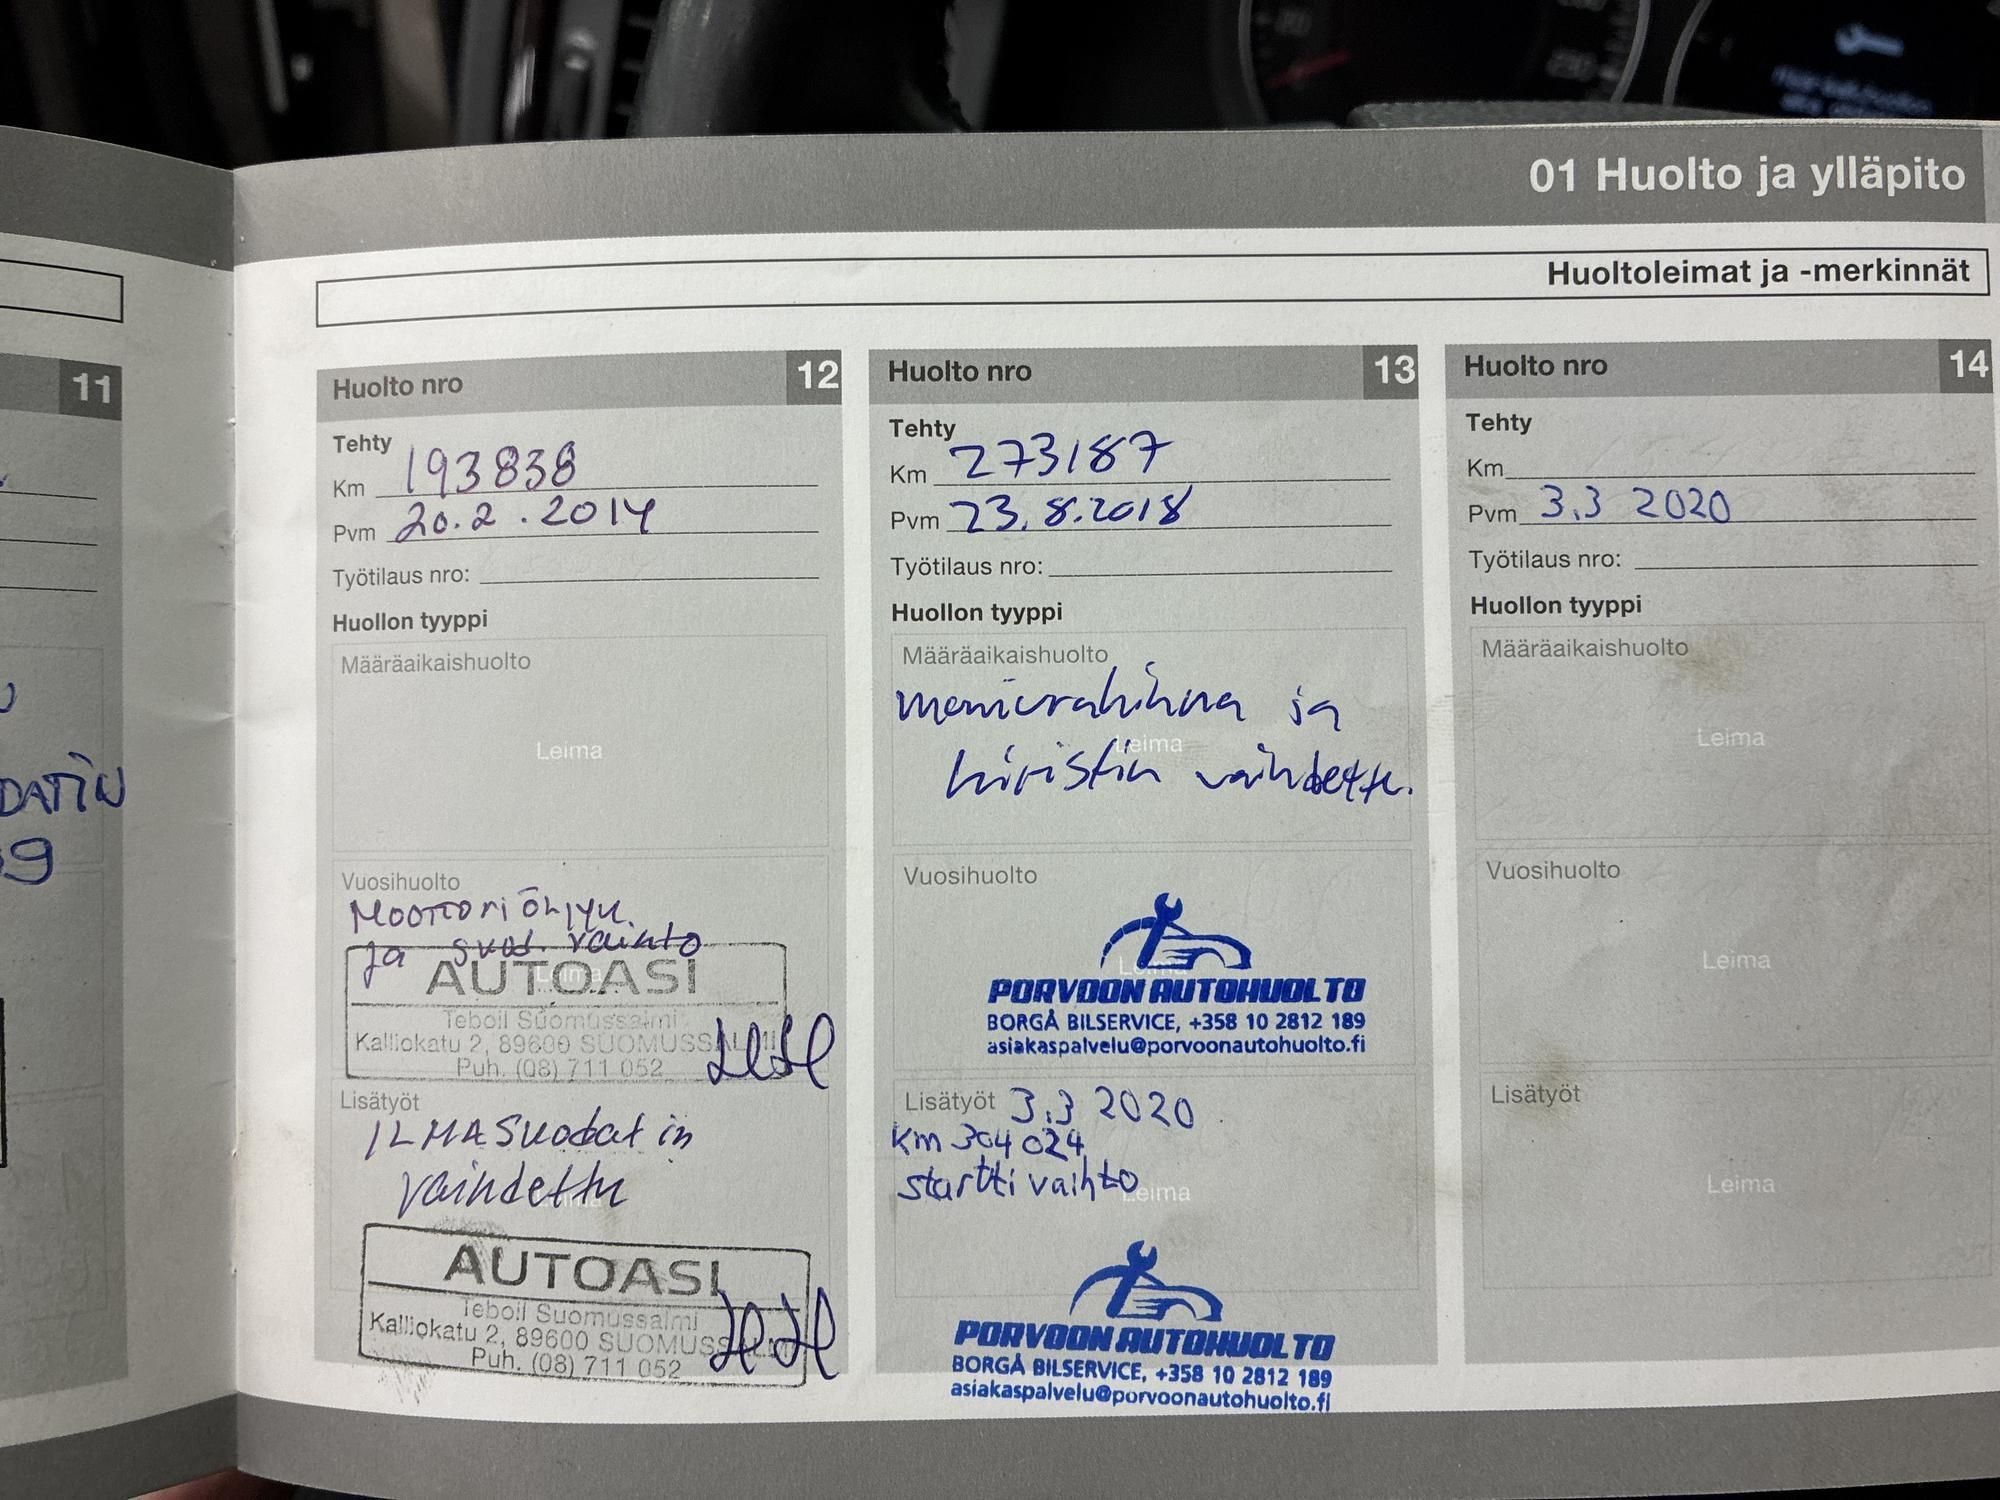 01 Huolto ja ylläpito
Huoltoleimat ja -merkinnät
11
DATIN
9
Huolto nro 12
Tehty
Km 193838
Pvm 20.2.2014
Työtilaus nro:
Huollon tyyppi
Määräaikaishuolto
Leima
Vuosihuolto
Moottoriöljyn
ja suod. vaihto
Leima
AUTOASI
Teboil Suomussalmi
Kalliokatu 2, 89600 SUOMUSSALMI
Puh. (08) 711 052
Lisätyöt
ILMASuodatin
vaihdettu
Leima
AUTOASI
Teboil Suomussalmi
Kalliokatu 2, 89600 SUOMUSSALMI
Puh. (08) 711 052
Huolto nro 13
Tehty
Km 273187
Pvm 23.8.2018
Työtilaus nro:
Huollon tyyppi
Määräaikaishuolto
moniurahihna ja
Leima
kiristin vaihdettu.
Vuosihuolto
Leima
PORVOON AUTOHUOLTO
BORGÅ BILSERVICE, +358 10 2812 189
asiakaspalvelu@porvoonautohuolto.fi
Lisätyöt 3.3 2020
Km 304 024
startti vaihto
Leima
PORVOON AUTOHUOLTO
BORGÅ BILSERVICE, +358 10 2812 189
asiakaspalvelu@porvoonautohuolto.fi
Huolto nro 14
Tehty
Km
Pvm 3.3 2020
Työtilaus nro:
Huollon tyyppi
Määräaikaishuolto
Leima
Vuosihuolto
Leima
Lisätyöt
Leima